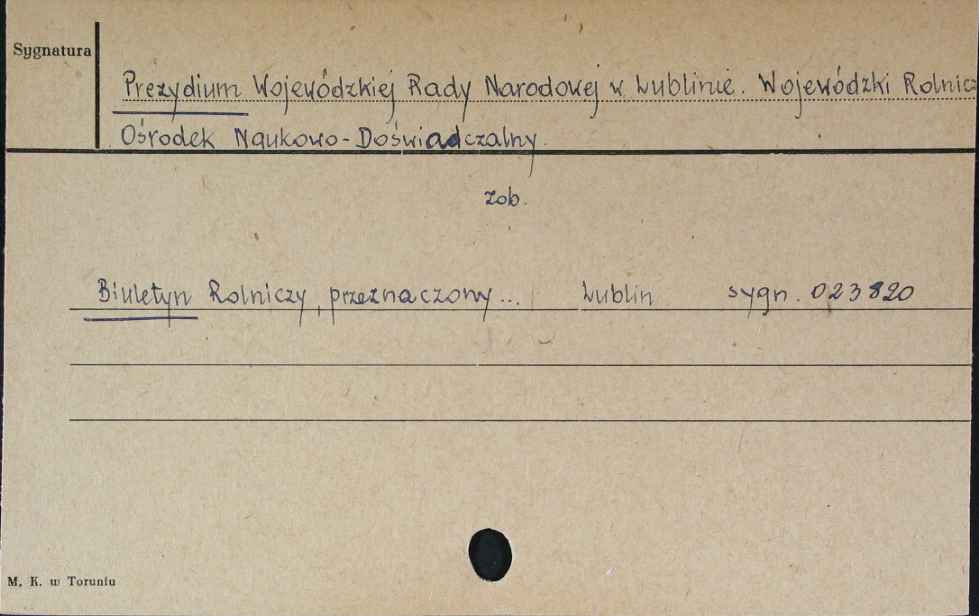 Sygnatura
Prezydium Wojewódzkiej Rady Narodowej w Lublinie. Wojewódzki Rolnicz
Ośrodek Naukowo-Doświadczalny.
zob.
Biuletyn Rolniczy, przeznaczony... Lublin sygn. 023820
M. K. w Toruniu